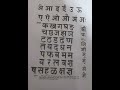 अ आ इ ई उ ऊ
ए ऐ ओ औ अं अः
क ख ग घ ङ
च छ ज झ ञ
ट ठ ड ढ ण
त थ द ध न
प फ ब भ म
य र ल व श
ष स ह ळ क्ष ज्ञ